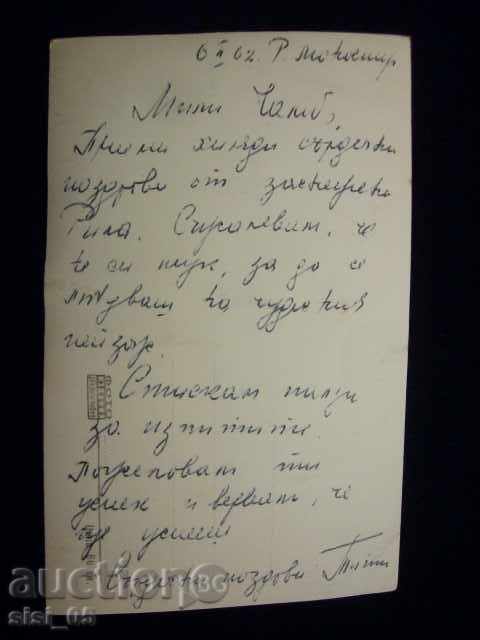 6 II 62. Р. манастир
Мили
Приеми хиляди сърдечни
поздрави от заснежена
Рила. Съжалявам, че
не си тук, за да се
любуваш на чудесния
пейзаж.
Стискам палци
за изпитите.
Пожелавам ти
успех и вярвам, че
ще успееш
Сърдечни поздрави
auction BG
sisi_05